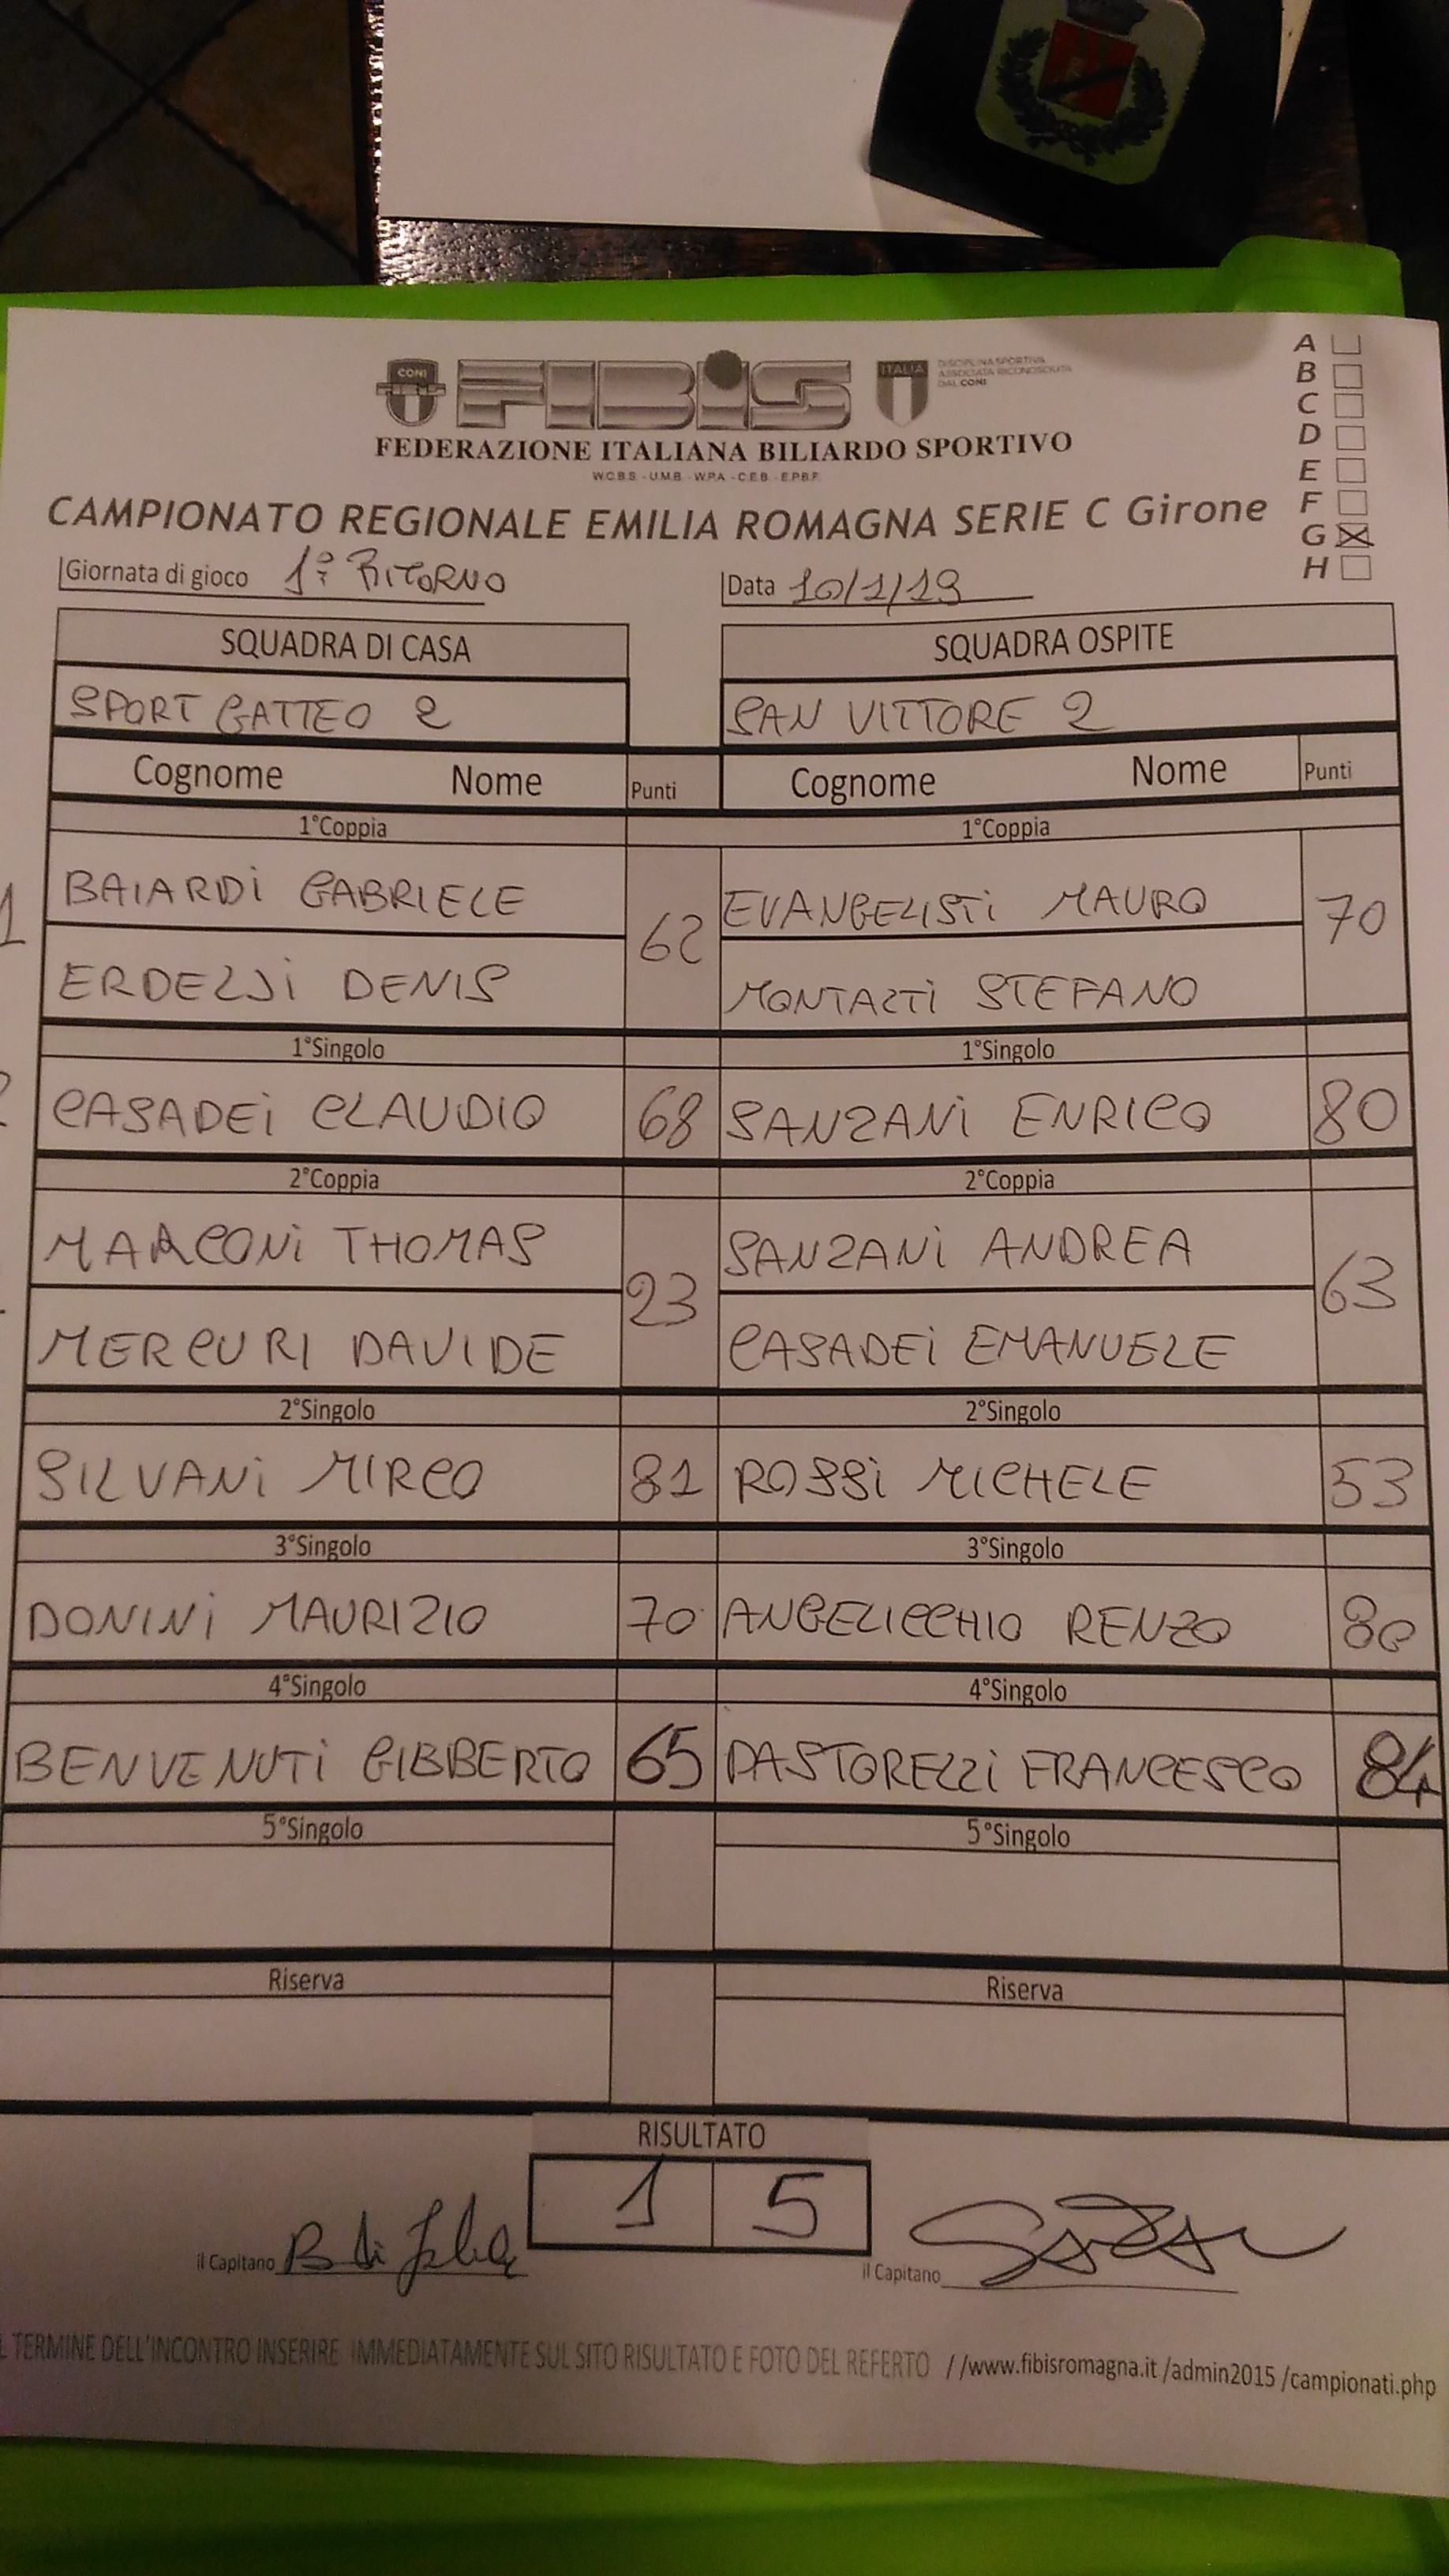 CONI
FIBIS
ITALIA
DISCIPLINA SPORTIVA
ASSOCIATA RICONOSCIUTA
DAL CONI
FEDERAZIONE ITALIANA BILIARDO SPORTIVO
W.C.B.S. - U.M.B. - W.P.A. - C.E.B. - E.P.B.F.
A
B
C
D
E
F
G
H
CAMPIONATO REGIONALE EMILIA ROMAGNA SERIE C Girone
Giornata di gioco 1° RITORNO Data 10/1/19
SQUADRA DI CASA SQUADRA OSPITE
SPORT GATTEO 2 SAN VITTORE 2
Cognome Nome Punti Cognome Nome Punti
1°Coppia 1°Coppia
BAIARDI GABRIELE 62 EVANGELISTI MAURO 70
ERDELJI DENIS MONTALTI STEFANO
1°Singolo 1°Singolo
CASADEI CLAUDIO 68 SANZANI ENRICO 80
2°Coppia 2°Coppia
MARCONI THOMAS 23 SANZANI ANDREA 63
MERCURI DAVIDE CASADEI EMANUELE
2°Singolo 2°Singolo
SILVANI MIRCO 81 ROSSI MICHELE 53
3°Singolo 3°Singolo
DONINI MAURIZIO 70 ANGELICCHIO RENZO 80
4°Singolo 4°Singolo
BENVENUTI GIBBERTO 65 PASTORELLI FRANCESCO 84
5°Singolo 5°Singolo
Riserva Riserva
RISULTATO
1 5
il Capitano il Capitano
L TERMINE DELL'INCONTRO INSERIRE IMMEDIATAMENTE SUL SITO RISULTATO E FOTO DEL REFERTO //www.fibisromagna.it /admin2015 /campionati.php